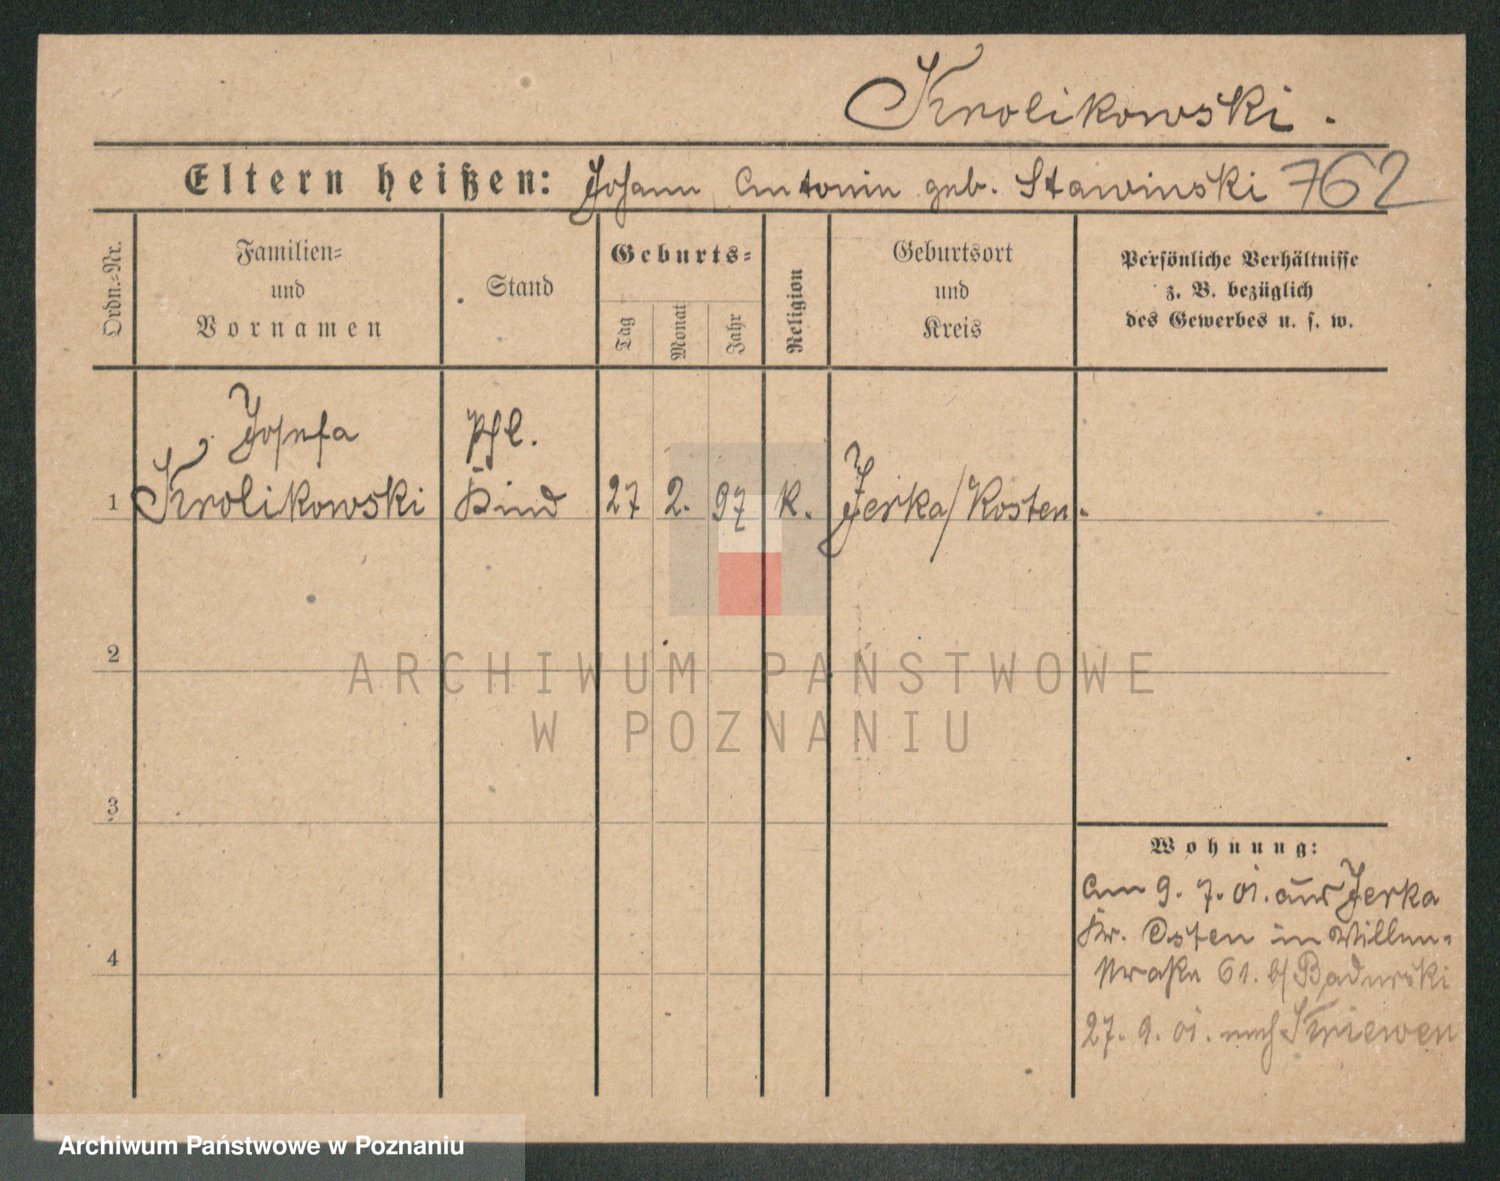 Krolikowski.
Eltern heißen: Johann Antonin geb. Stawinski 762
Ordn.-Nr.
Familien-
und
Vornamen
Stand
Geburts-
Tag
Monat
Jahr
Religion
Geburtsort
und
Kreis
Persönliche Verhältnisse
z. B. bezüglich
des Gewerbes u. s. w.
Josefa Pfl.
1 Krolikowski Kind 27 2. 97 K. Jerka/Kosten.
2
3
4
Wohnung:
am 9. 7. 01. aus Jerka
Kr. Costen in Willen-
straße 61. b/ Badurski
27. 9. 01. nach Kriewen
ARCHIWUM PAŃSTWOWE
W POZNANIU
Archiwum Państwowe w Poznaniu